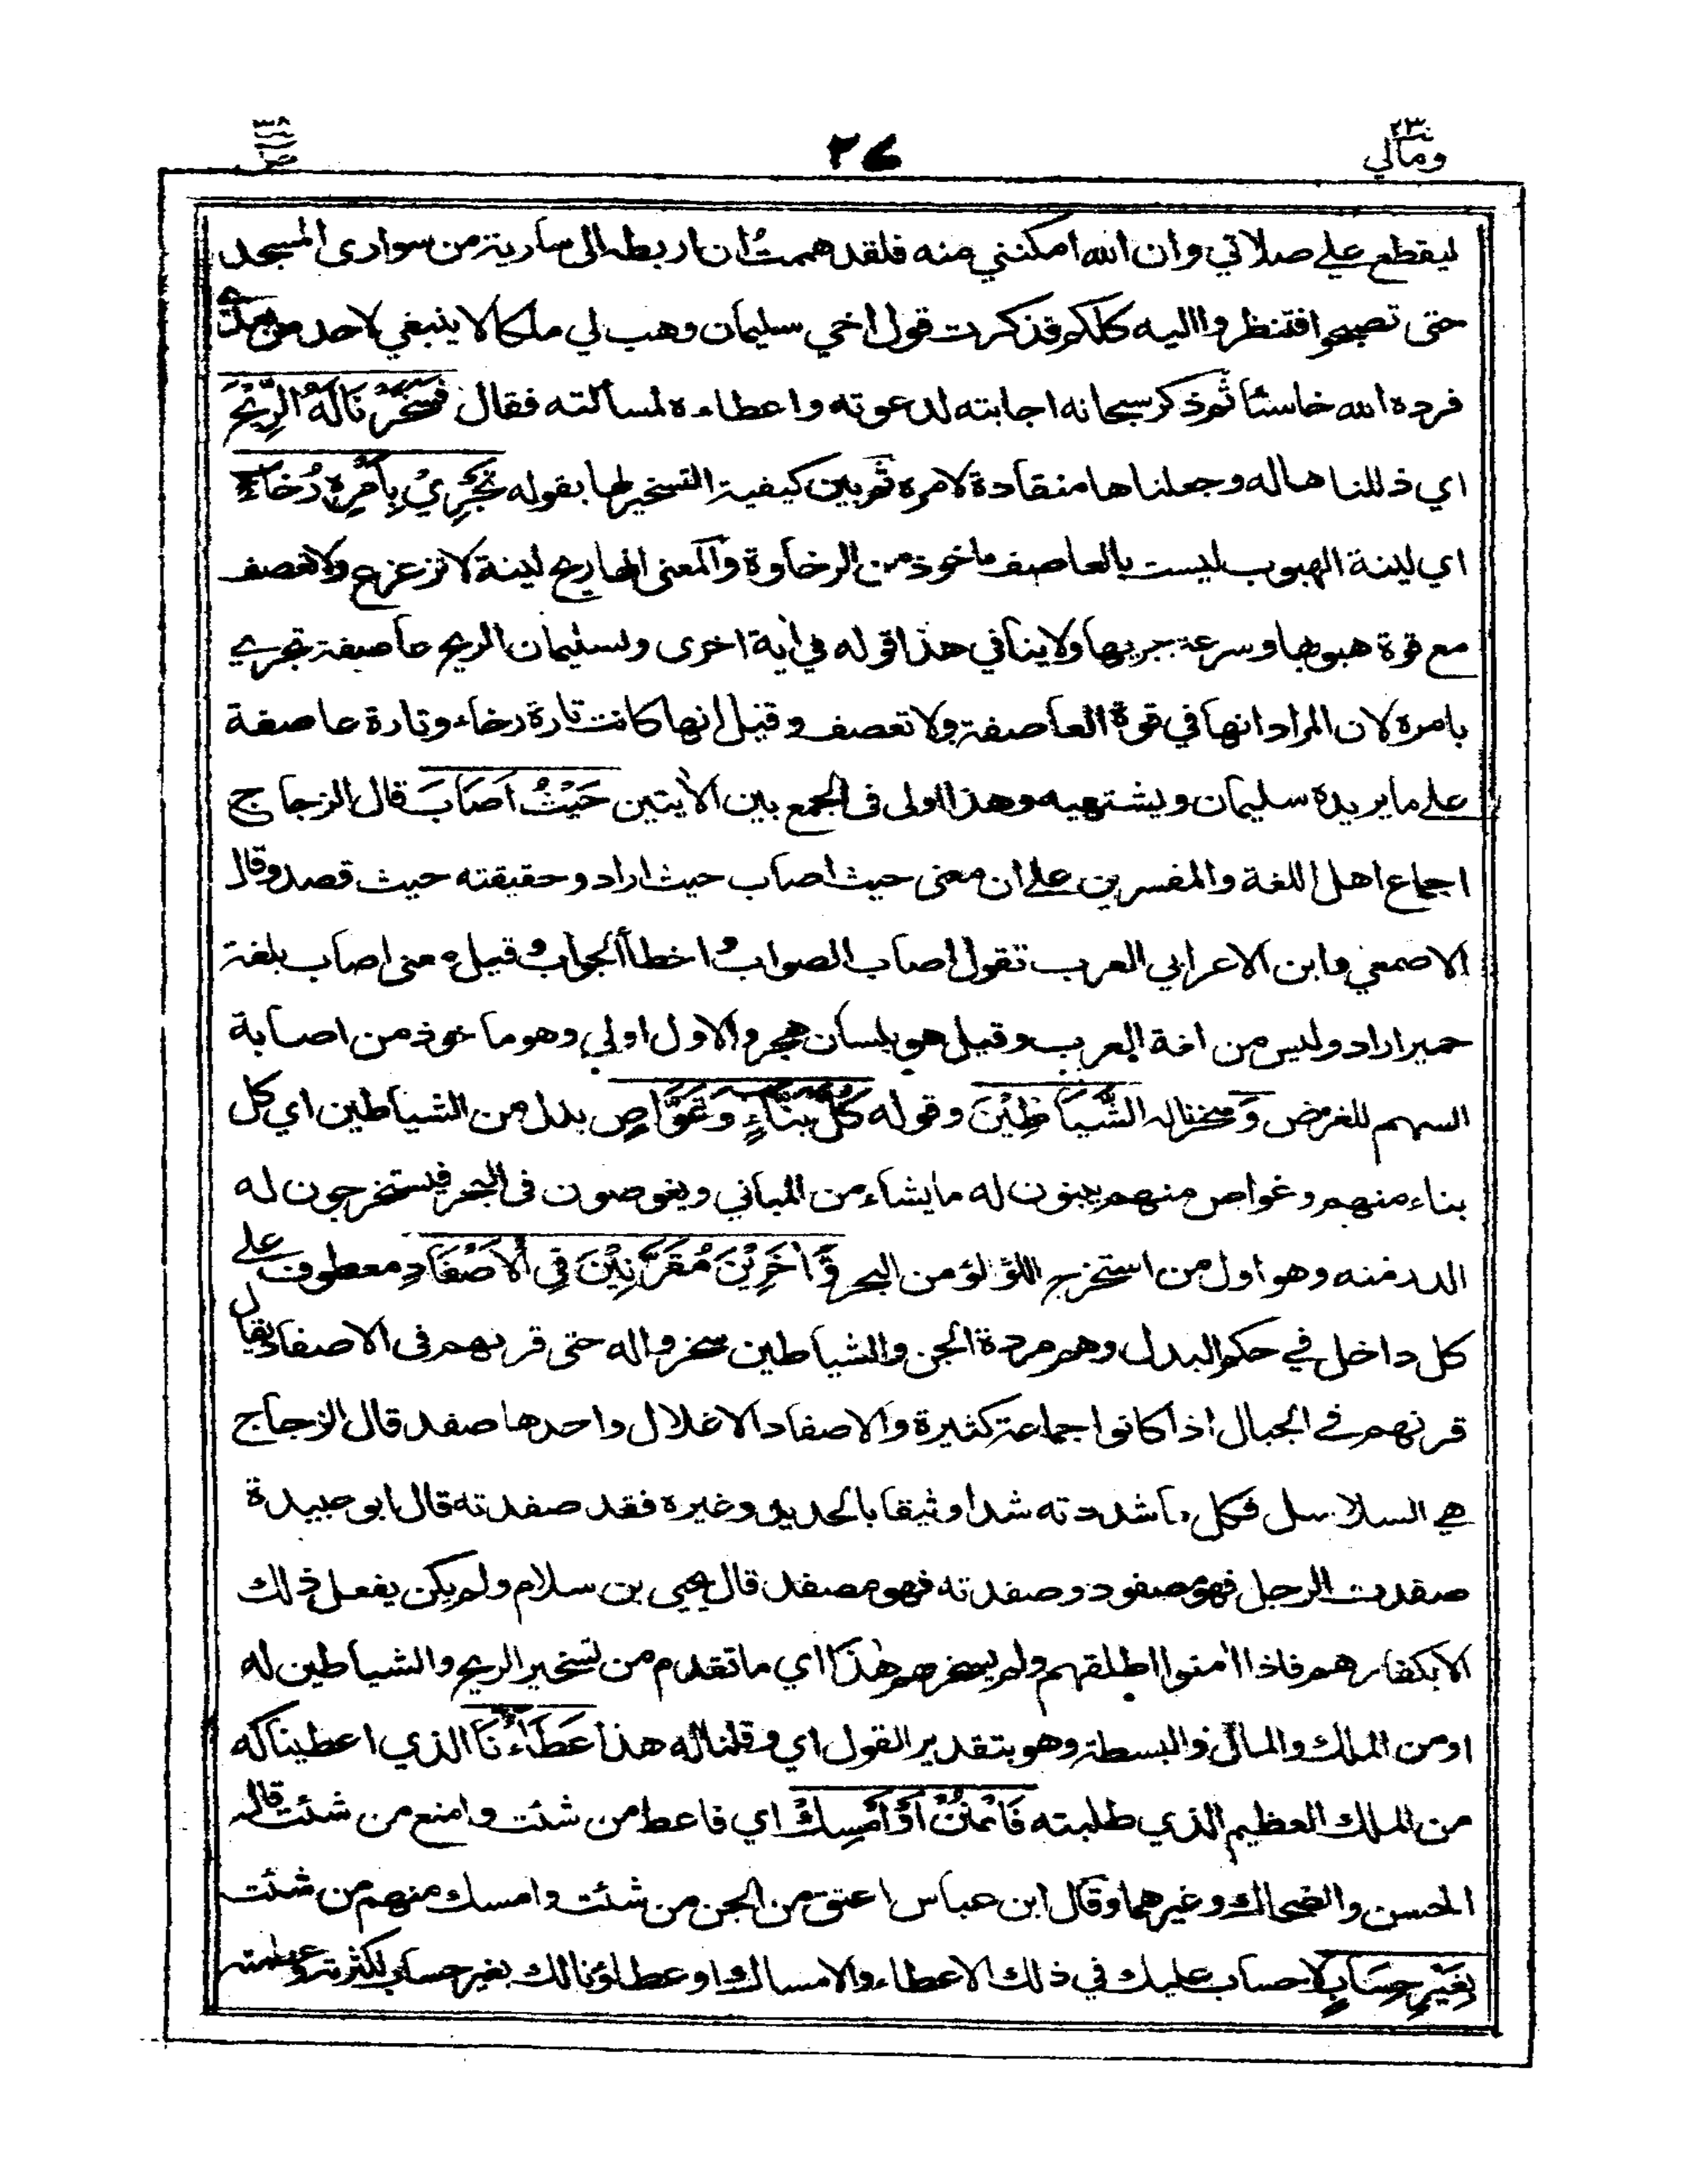 ومالي ٢٣
٢٦
ص ٣٨
ليقطع علي صلاتي وان الله امكنني منه فلقد هممتُ ان اربطه الى سارية من سوارى المسجد
حتى تصبحوا فتنظروا اليه كلكم فذكرت قول اخي سليمان وهب لي ملكا لا ينبغي لاحد من بعدي
فرده الله خاسئا ثم ذكر سبحانه اجابته لدعوته واعطاءه لمسألته فقال فَسَخَّرْنَا لَهُ الرِّيْحَ
اي ذللنا هاله وجعلناها منقادة لامره ثم بين كيفية التسخير لها بقوله تَجْرِيْ بِاَمْرِهٖ رُخَاءً
اي لينة الهبوب ليست بالعاصف ماخوذ من الرخاوة والمعنى انها ريح لينة لا تزعزع ولا تعصف
مع قوة هبوبها وسرعة جريها ولا ينافي هذا قوله في اٰية اخرى ولسليمان الريح عاصفة تجري
بامره لان المراد انها في قوة العاصفة ولا تعصف وقيل انها كانت تارة رخاء وتارة عاصفة
على ما يريده سليمان ويشتهيه وهذا اولى فى الجمع بين الاٰيتين حَيْثُ اَصَابَ قال الزجاج
اجماع اهل اللغة والمفسرين على ان معنى حيث اصاب حيث اراد وحقيقته حيث قصد وقال
الاصمعي وابن الاعرابي العرب تقول اصاب الصواب واخطأ الجواب وقيل معنى اصاب بلغة
حمير اراد وليس من لغة العرب وقيل هو بلسان هجر والاول اولى وهو ماخوذ من اصابة
السهم للغرض وَ سخرنا له الشَّيَاطِيْنَ وقوله كُلَّ بَنَّاءٍ وَغَوَّاصٍ بدل من الشياطين اي كل
بناء منهم وغواص منهم يبنون له ما يشاء من المباني ويغوصون فى البحر فيستخرجون له
الدر منه وهو اول من استخرج اللؤلؤ من البحر وَّاٰخَرِيْنَ مُقَرَّنِيْنَ فِي الْاَصْفَادِ معطوف على
كل داخل في حكم البدل وهم مردة الجن والشياطين سخروا له حتى قرنهم فى الاصفاد يقال
قرنهم في الحبال اذا كانوا جماعة كثيرة والاصفاد الاغلال واحدها صفد قال الزجاج
هي السلاسل فكل ما شددته شدا وثيقا بالحديد وغيره فقد صفدته قال ابو عبيدة
صفدت الرجل فهو مصفود وصفدته فهو مصفد قال يحيى بن سلام ولم يكن يفعل ذلك
الا بكفارهم فاذا اٰمنوا اطلقهم ولم يسخرهم هٰذَا اي ما تقدم من تسخير الريح والشياطين له
او من الملك والمال والبسطة وهو بتقدير القول اي وقلنا له هذا عَطَاءُنَا الذي اعطيناكه
من الملك العظيم الذي طلبته فَامْنُنْ اَوْ اَمْسِكْ اي فاعط من شئت وامنع من شئت قاله
الحسن والضحاك وغيرهما وقال ابن عباس اعتق من الجن من شئت وامسك منهم من شئت
بِغَيْرِ حِسَابٍ لا حساب عليك في ذلك الاعطاء والامساك او عطاؤنا لك بغير حساب لكثرته وعظمته